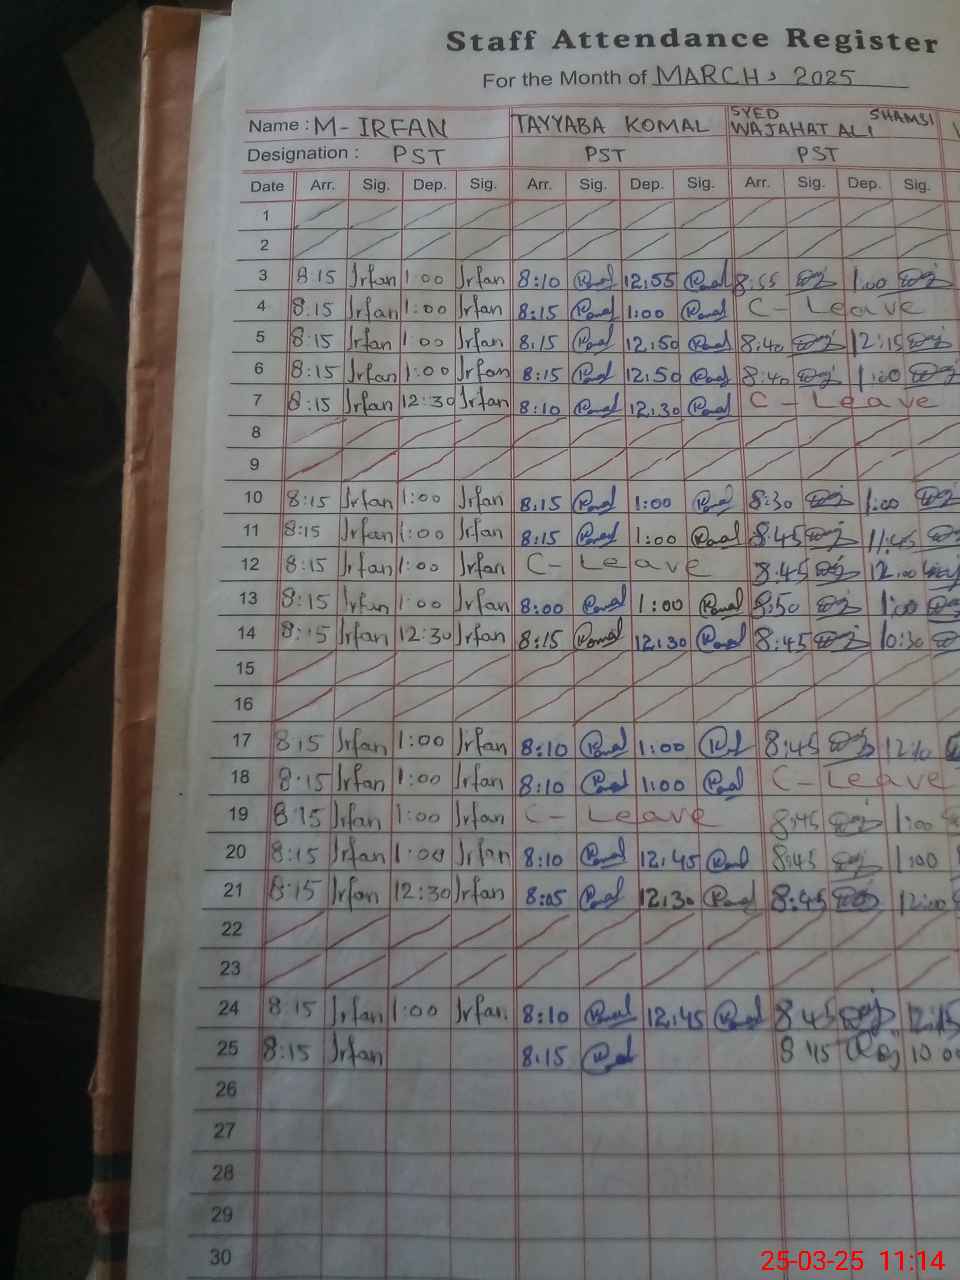 Staff Attendance Register
For the Month of MARCH, 2025
Name : M- IRFAN TAYYABA KOMAL SYED WAJAHAT ALI SHAMSI
Designation : PST PST PST
Date Arr. Sig. Dep. Sig. Arr. Sig. Dep. Sig. Arr. Sig. Dep. Sig.
1
2
3 8:15 Irfan 1:00 Irfan 8:10 12:55 8:55 1:00
4 8:15 Irfan 1:00 Irfan 8:15 1:00 C - Leave
5 8:15 Irfan 1:00 Irfan 8:15 12:50 8:40 12:15
6 8:15 Irfan 1:00 Irfan 8:15 12:50 8:40 1:00
7 8:15 Irfan 12:30 Irfan 8:10 12:30 C - Leave
8
9
10 8:15 Irfan 1:00 Irfan 8:15 1:00 8:30 1:00
11 8:15 Irfan 1:00 Irfan 8:15 1:00 8:45 11:45
12 8:15 Irfan 1:00 Irfan C - Leave 8:45 12:00
13 8:15 Irfan 1:00 Irfan 8:00 1:00 8:50 1:00
14 8:15 Irfan 12:30 Irfan 8:15 12:30 8:45 10:30
15
16
17 8:15 Irfan 1:00 Irfan 8:10 1:00 8:45 12:10
18 8:15 Irfan 1:00 Irfan 8:10 1:00 C - Leave
19 8:15 Irfan 1:00 Irfan C - Leave 8:45 1:00
20 8:15 Irfan 1:00 Irfan 8:10 12:45 8:45 1:00
21 8:15 Irfan 12:30 Irfan 8:05 12:30 8:45 12:00
22
23
24 8:15 Irfan 1:00 Irfan 8:10 12:45 8 45 12:15
25 8:15 Irfan 8:15 10 00
26
27
28
29
30
25-03-25 11:14